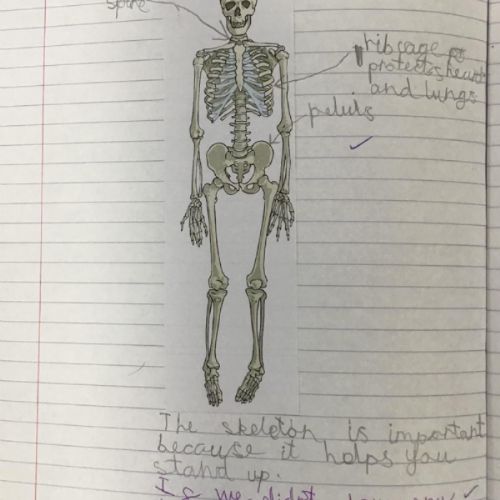 spine
ribcage
protects heart
and lungs
pelvis
The skeleton is important
because it helps you
stand up.
I